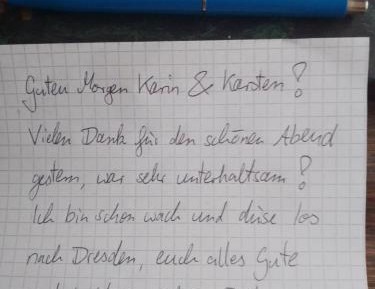 Guten Morgen Karin & Karsten!
Vielen Dank für den schönen Abend
gestern, war sehr unterhaltsam!
Ich bin schon wach und düse los
nach Dresden, euch alles Gute